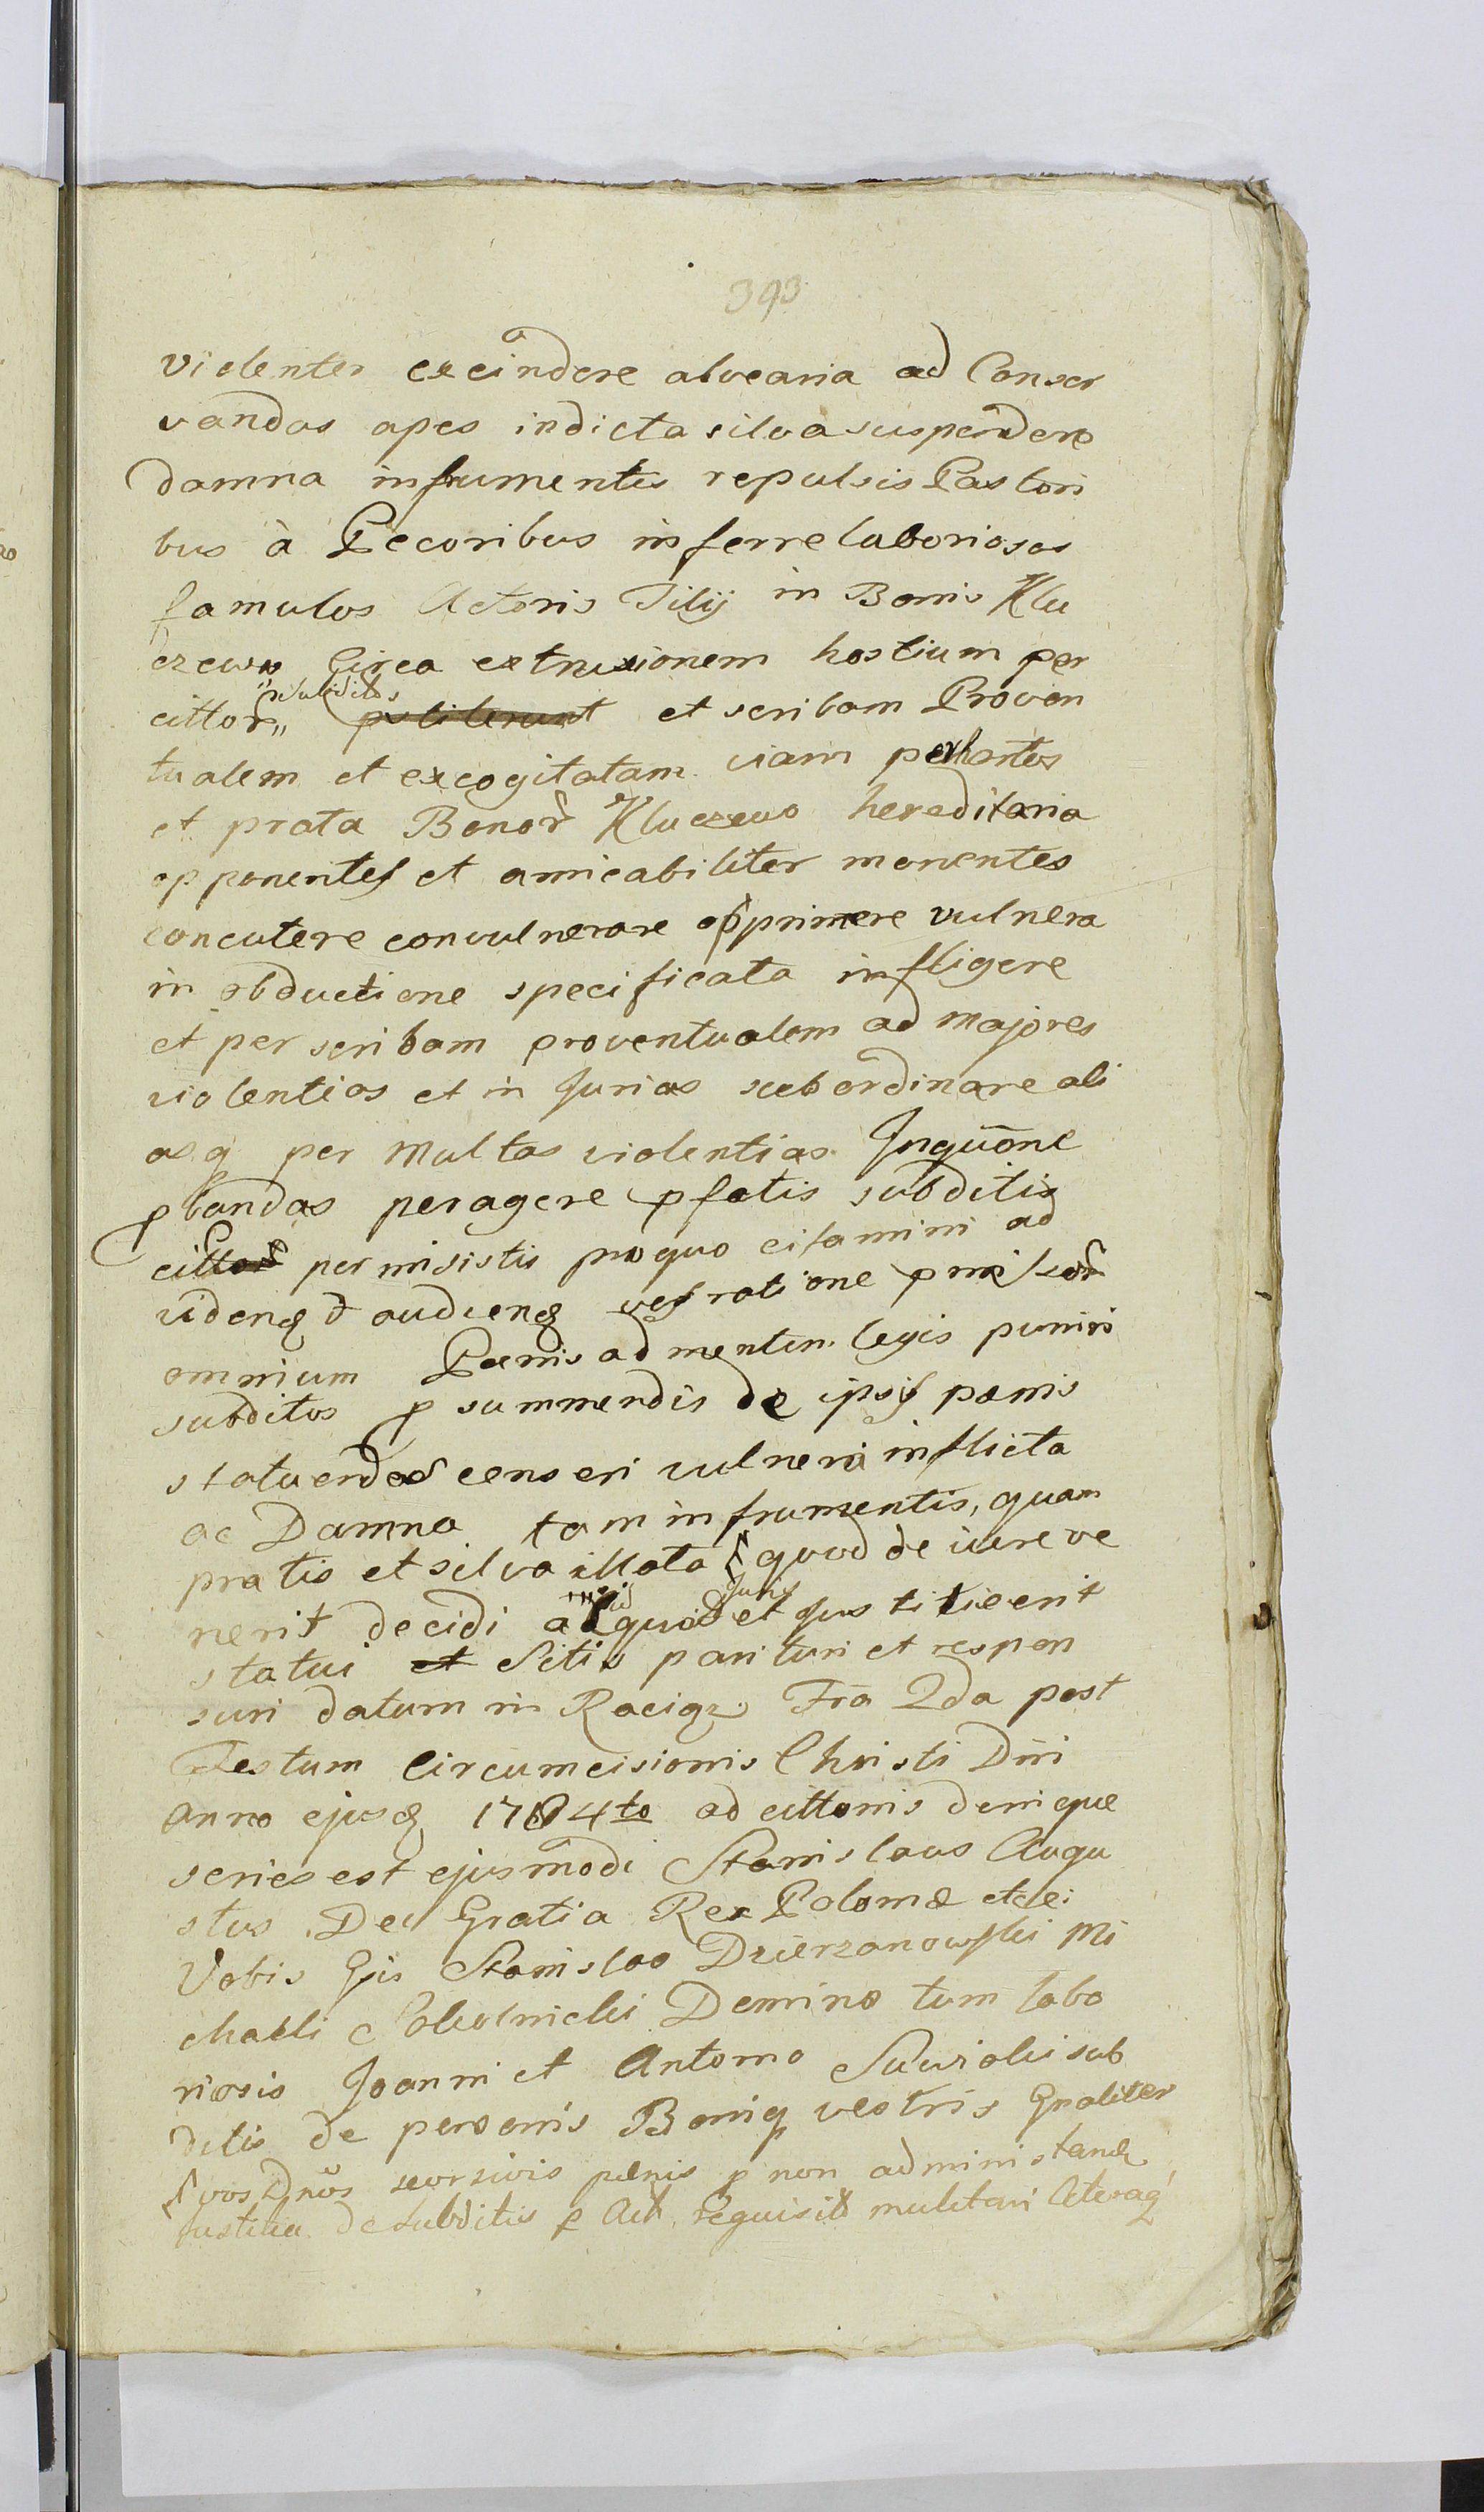 393
violenter excindere alvearia ad Conser
vandas apes in dicta silva suspendere
damna in frumentis repulsis Pastori
bus à Pecoribus inferre laboriosos
famulos Actoris Filij in Bonis Klu
czewo Circa extruxionem hostium per
cittor subditos et scribam Proven
tualem et excogitatam viam per hortos
et prata Bonor Kluczewo hereditaria
opponentes et amicabiliter monentes
concutere convulnerare opprimere vulnera
in obductione specificata infligere
et per scribam proventualem ad majores
violentias et injurias subordinare ali
asq per multas violentias Inquōne
pbandas peragere pfatis subditis
permisistis pro quo citamini ad
videnq et audienq vos ratione pmissor
omnium Poenis ad mentem legis puniri
subditos p summendis de ipsis poenis
statuendos censeri vulnera inflicta
ac Damna tam in frumentis, quam
pratis et silva illata quod de iure ve
nerit decidi quod Juris et Justitie erit
statui et Sitis parituri et respon
suri datum in Raciąz Fra 2da post
Festum Circumcisionis Christi Dni
Anno ejusq 1784to ad cittonis denique
series est ejusmodi Stanislaus Augu
stus Dei Gratia Rex Poloniæ etc
Vobis Gis Stanislao Dzierzanowski Mi
chaeli Sokolnicki Domino tum labo
riosis Joanni et Antonio subditis
ditis de personis Bonisq vestris Gnaliter
vos Dnos seorsivis pœnis p non administranda
Justitia de subditis p Act requisit mulctari Acteraq